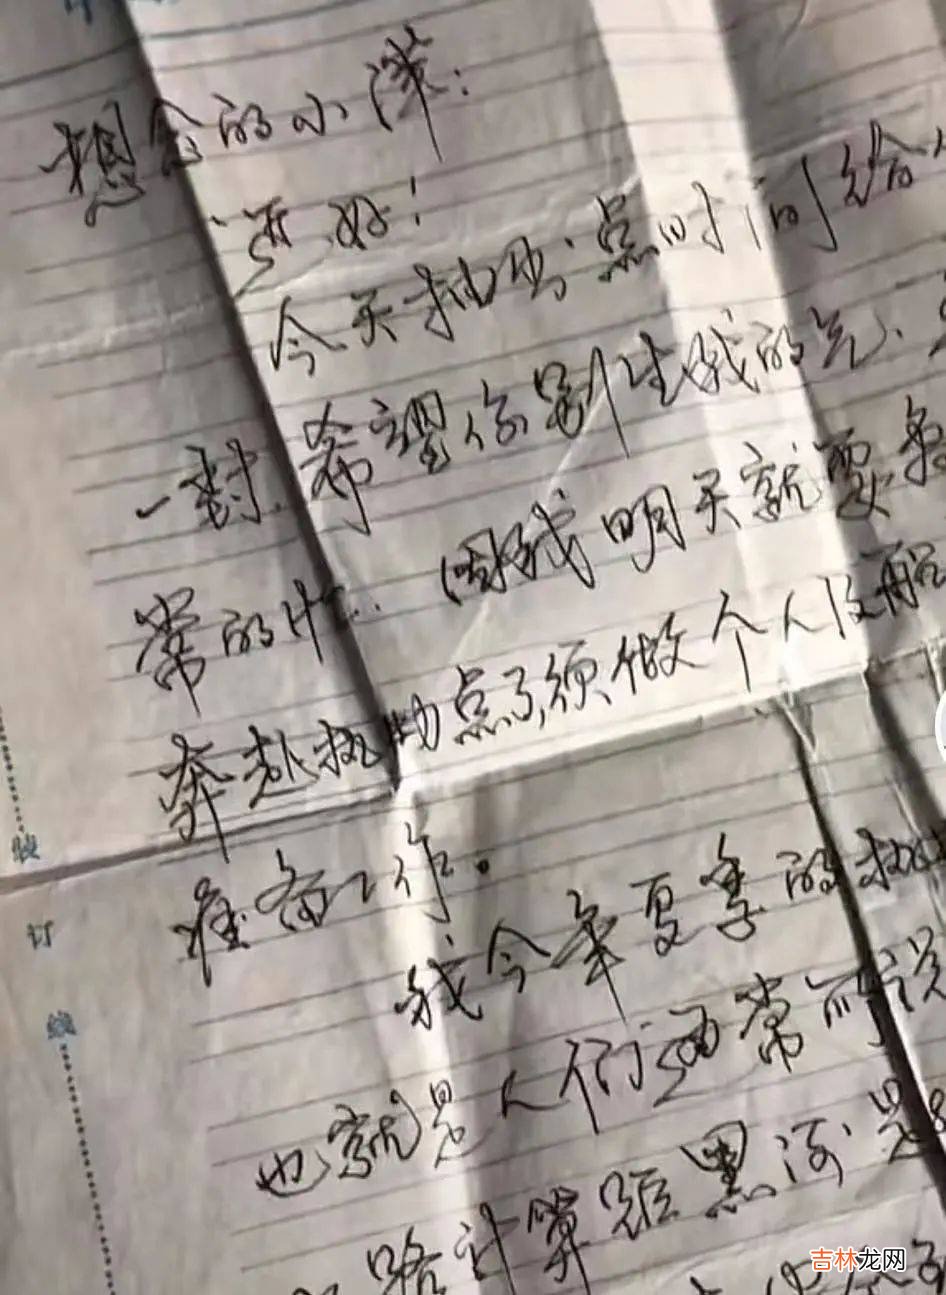 想念的小萍：
还好！
今天抽出一点时间给
一封，希望你别生我的气、
常的忙．．因我明天就要
奔赴执勤点了，须做个人没
准备工作。
我今年夏季的执
也就是人们通常所说
路计算距黑河
装
订
线
吉林龙网